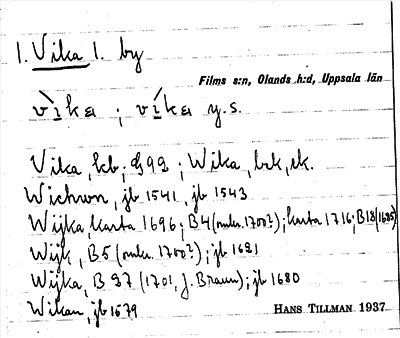 1. Vika 1. by
Films s:n, Olands h:d, Uppsala län
vìka ; víka y.s.
Vika, hb; G92 ; Wika, brk, sk.
Wichwn, jb 1541, jb 1543
Wijka, karta 1696; B4 (omkr. 1700?); karta 1716; B18 (1685)
Wijk, B5 (omkr. 1700?); jb 1621
Wijka, B 37 (1701, J. Braun); jb 1680
Wikan, jb 1579
HANS TILLMAN 1937